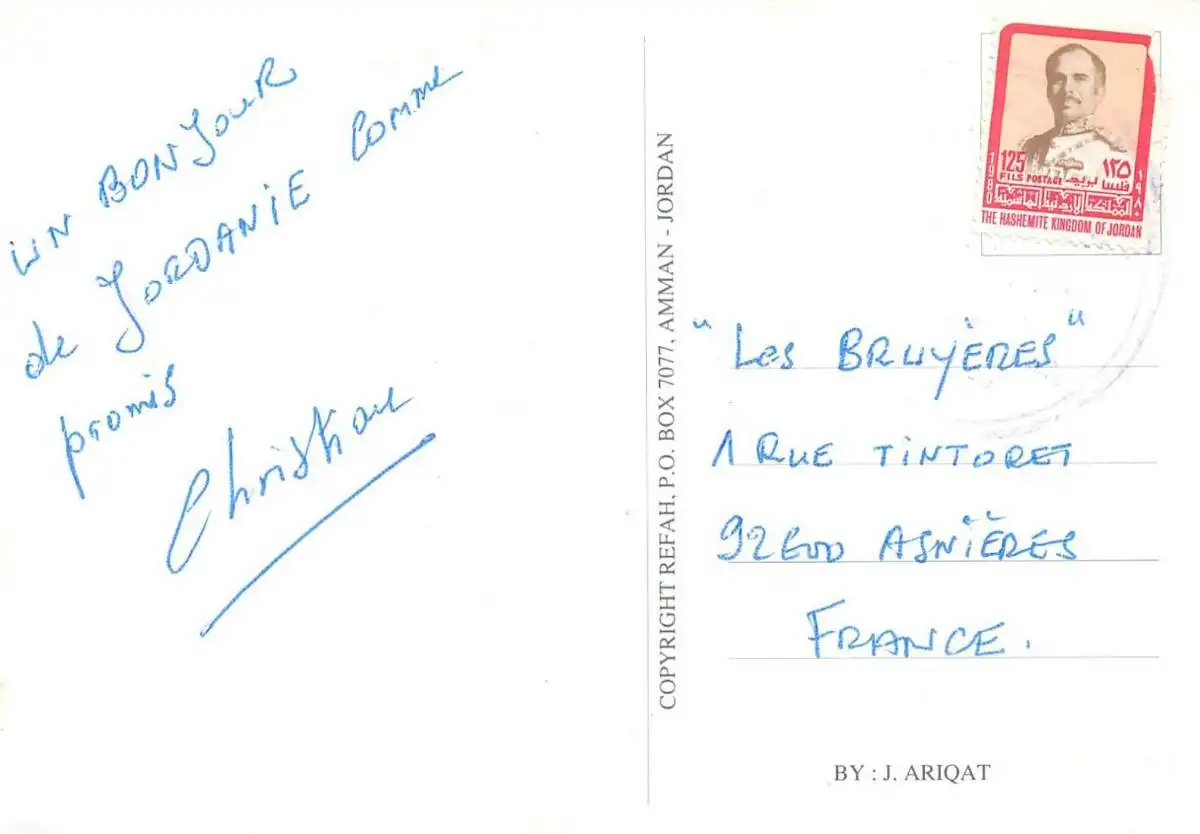 UN BONJOUR
de JORDANIE comme
promis
Christian
COPYRIGHT REFAH, P.O. BOX 7077, AMMAN - JORDAN
125 ١٢٥
FILS POSTAGE فلسا بريد
1980 ١٩٨٠
المملكة الأردنية الهاشمية
THE HASHEMITE KINGDOM OF JORDAN
"Les BRUYÈRES"
1 RUE TINTORET
92600 ASNIÈRES
FRANCE.
BY : J. ARIQAT